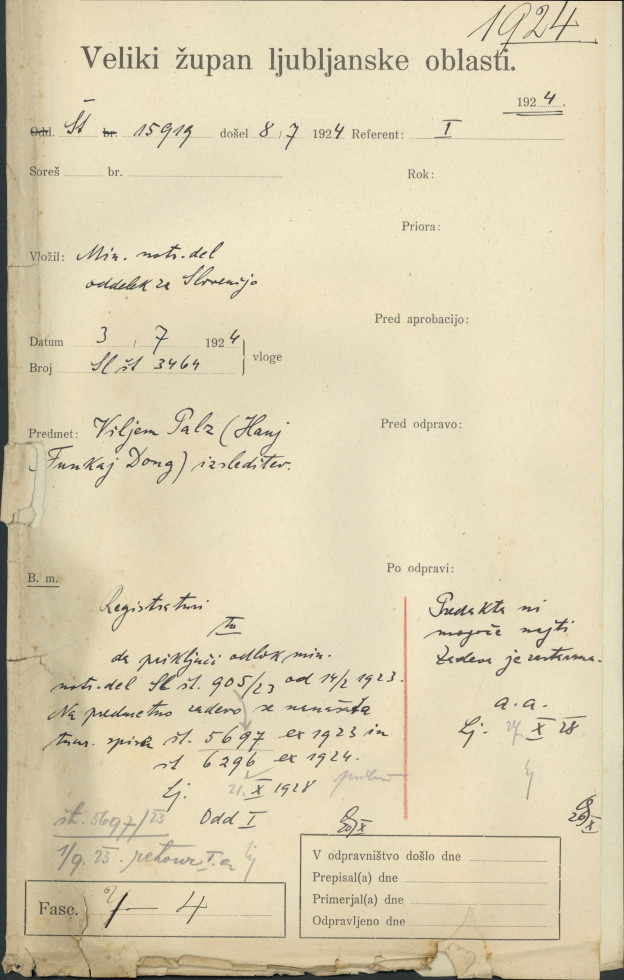 1924
Veliki župan ljubljanske oblasti.
192 4.
Odd. Št br. 15919 došel 8 / 7 1924 Referent: I
Soreš br.
Rok:
Priora:
Vložil: Min. notr. del
oddelek za Slovenijo
Pred aprobacijo:
Datum 3 / 7 1924
Broj Sl št 3464 vloge
Predmet: Viljem Palz (Hanj
Funkaj Dong) izsleditev.
Pred odpravo:
B. m.
Po odpravi:
Registraturi
tu
da priključi odlok min.
notr. del Sl št. 905/23 od 14/2 1923.
Na predmetno zadevo se nanašata
tuur. spisa št. 5697 ex 1923 in
št 6296 ex 1924.
Lj. 21. X 1928
Odd I
Predakta ni
mogoče najti
Zadeva je zastarana.
a. a.
Lj. 24 X 28
št. 5697/23
1/9. 23. retour I. a
V odpravništvo došlo dne
Prepisal(a) dne
Primerjal(a) dne
Odpravljeno dne
Fasc. 7 — 4